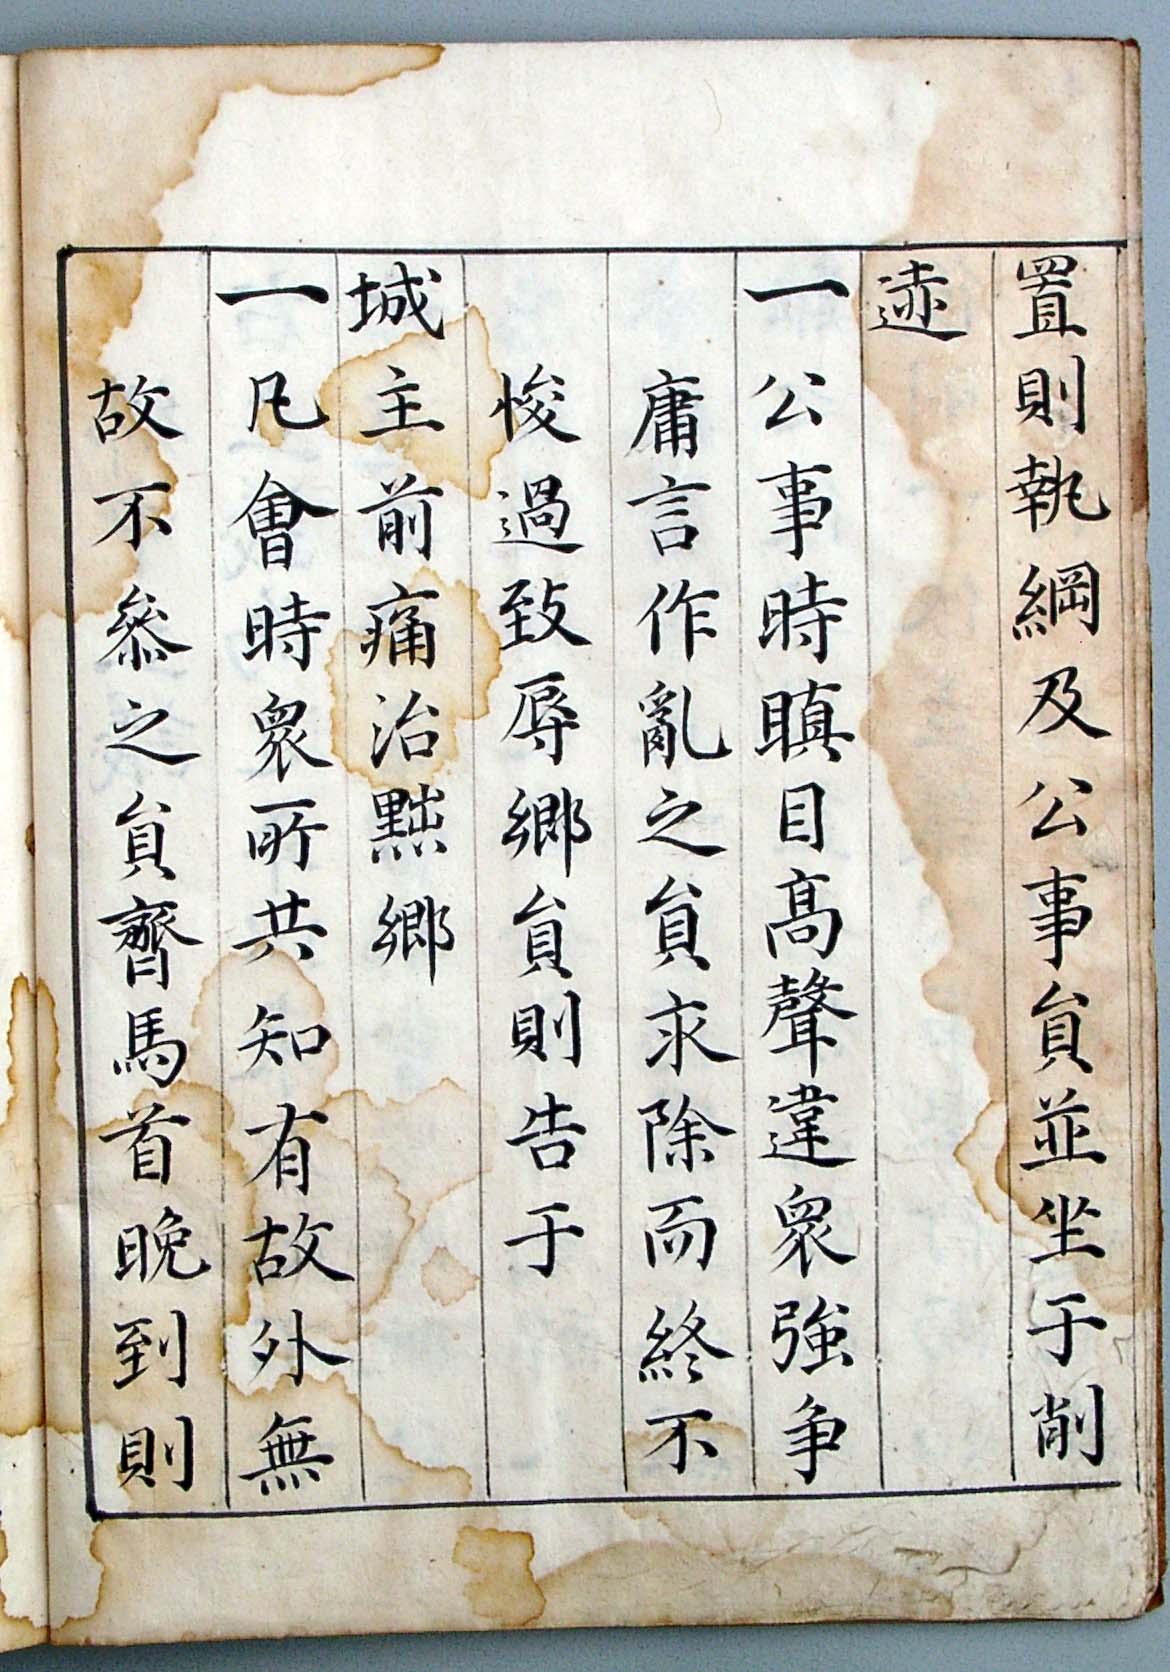 置則執綱及公事負並坐于削
迹
一公事時瞋目高聲違衆強爭
庸言作亂之負求除而終不
悛過致辱鄕負則告于
城主前痛治黜鄕
一凡會時衆所共知有故外無
故不參之負齊馬首晩到則